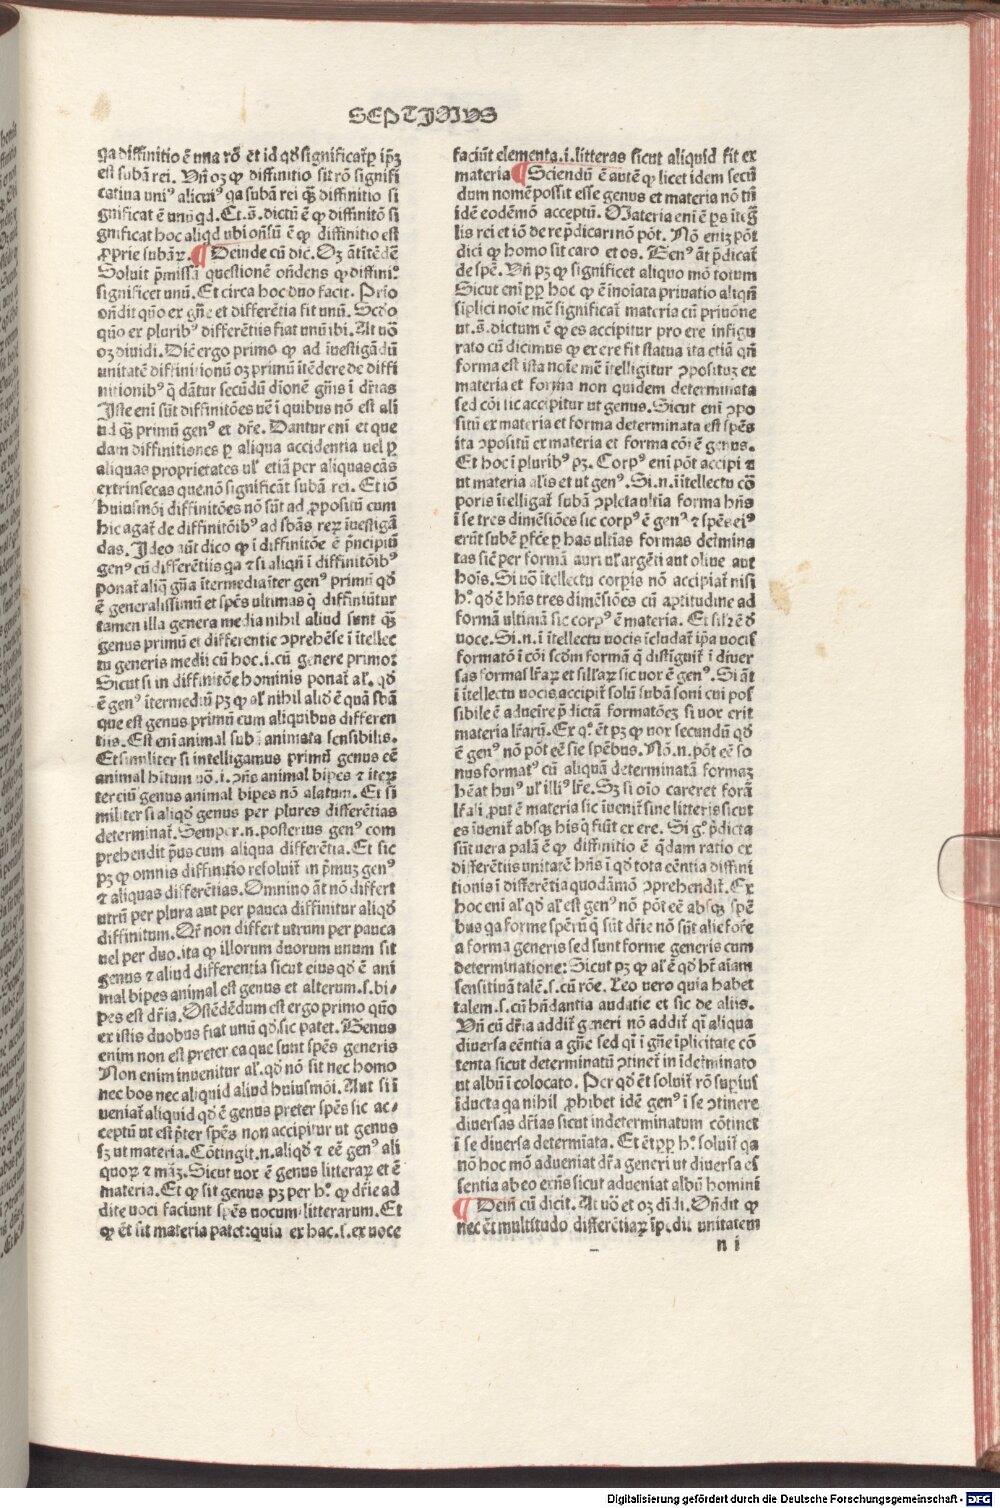 SEPTIMVS
qa diffinitio ē una rō et id qd̄ significat̄ꝑ ip̄ꝫ
est subā rei. Vn̄ oꝫ ꝙ diffinitio sit rō signifi
catiua uniꝰ alicuiꝰ qa subā rei quā diffinitio si
gnificat ē unū qd. Et.s̄. dictū ē ꝙ diffinitō si
gnificat hoc aliqd ubi on̄sū ē ꝙ diffinitio est
ꝓprie subāꝝ. ¶ Deinde cū dic̄. Oꝫ āt itēdē
Soluit p̄missā questionē on̄dens ꝙ diffiniᵒ
significet unū. Et circa hoc duo facit. Prīo
on̄dit quō ex gn̄e et differētia fit unū. Scd̄o
quō ex pluribꝰ differētiis fiat unū ibi. At uō
oꝫ diuidi. Diē ergo primo ꝙ ad īuestigādū
unitatē diffinitionū oꝫ primū itēdere de diffi
nitionibꝰ q̄ dātur secūdū diōnē gn̄is ī dr̄ias
Iste enī sūt diffinitōes uē ī quibus nō est ali
ud quā primū genꝰ et dr̄e. Dantur enī et que
dam diffinitiones ꝑ aliqua accidentia uel ꝑ
aliquas proprietates ul̓ etiā per aliquas cās
extrinsecas que nō significāt subā rei. Et iō
huiusmōi diffinitōes nō sūt ad ꝓpositū cum
hic agat̄ de diffinitōibꝰ ad sbās reꝝ īuestigā
das. Ideo aūt dico ꝙ ī diffinitōe ē p̄ncipiū
genꝰ cū differētiis qa ⁊ si aliqn̄ ī diffinitōibꝰ
ponāt aliq̄ gn̄a īt̄media īter genꝰ primū qd̄
ē generalissimū et spēs ultimas q̄ diffiniūtur
tamen illa genera media nihil aliud sunt quā
genus primū et differentie ↄprehēse ī itellec
tu generis medii cū hoc.i.cū genere primo:
Sicut si in diffinitōe hominis ponat̄ al̓. qd̄
ē genꝰ it̄mediū pꝫ ꝙ al̓ nihil aliđ ē quā sbā
que est genus primū cum aliquibus differen
tiis. Est enī animal subā animata sensibilis.
Et similiter si intelligamus primū genus eē
animal hītum uō.i.ↄn̄s animal bipes ⁊ iteꝝ
terciū genus animal bipes nō alatum. Et si
militer si aliqd̄ genus per plures differētias
determinat̄. Semper.n.posterius genꝰ com
prehendit p̄us cum aliqua differētia. Et sic
pꝫ ꝙ omnis diffinitio resoluit̄ in p̄muꝫ genꝰ
⁊ aliquas differētias. Omnino āt nō differt
utrū per plura aut per pauca diffinitur aliqd̄
diffinitum. Qr̄ non differt utrum per pauca
uel per duo.ita ꝙ illorum duorum unum sit
genus ⁊ aliud differentia sicut eius qd̄ ē ani
mal bipes animal est genus et alterum.s.bi⸗
pes est dr̄ia. Ostēdēdum est ergo primo quō
ex istis duobus fiat unū qd̄.sic patet. Genus
enim non est preter ea que sunt spēs generis
Non enim inuenitur al̓. qd̄ nō sit nec homo
nec bos nec aliquid aliud huiusmōi. Aut si ī
ueniat̄ aliquid qd̄ ē genus preter spēs sic ac⸗
ceptū ut est p̄ter spēs non accipitur ut genus
sꝫ ut materia. Cōtingit.n.aliqd̄ ⁊ eē genꝰ ali
quoꝝ ⁊ mā3. Sicut uox ē genus litteraꝝ et ē
materia. Et ꝙ sit genus pꝫ per hᵒ ꝙ dr̄ie ad
dite uoci faciunt spēs uocum:litterarum. Et
ꝙ ēt sit materia patet:quia ex hac.s.ex uoce
faciūt elementa.i.litteras sicut aliquid fit ex
materia ¶ Sciendū ē autē ꝙ licet idem secū
dum nomē possit esse genus et materia nō tn̄
idē eodēmō acceptū. Materia enī ē ps̄ itēg̅
lis rei et iō de re p̄dicari nō pōt. Nō eniꝫ pōt
dici ꝙ homo sit caro et os. Genꝰ āt p̄dicat̄
de spē. Vn̄ pꝫ ꝙ significet aliquo mō totum
Sicut enī ꝓꝑ hoc ꝙ ē inoīata priuatio aliqn̄
siplici noīe mē significat̄ materia cū priuōne
ut.s̄.dictum ē ꝙ es accipitur pro ere infigu
rato cū dicimus ꝙ ex ere fit statua ita etiā qn̄
forma est ista noīe mē itelligitur ↄpositu3 ex
materia et forma non quidem determinata
sed cōi sic accipitur ut genus. Sicut enī ↄpo
sitū ex materia et forma determinata est spēs
ita ↄpositū ex materia et forma cōi ē genus.
Et hoc ī pluribꝰ pꝫ. Corpꝰ enī pōt accipi ⁊
ut materia alis et ut genꝰ. Si.n.ī itellectu co
poris itelligat̄ subā ↄpleta ultīa forma hn̄s
ī se tres dimēsiōes sic corpꝰ ē genꝰ ⁊ spēs eiꝰ
erūt subē ꝑfc̄e ꝑ has ultīas formas det̄mina
tas siē per formā auri ul̓ argēti aut oliue aut
hoīs. Si uō itellectu corpis nō accipiat̄ nisi
hᵒ. qd̄ ē hn̄s tres dimēsiōes cū aptitudine ad
formā ultimā sic corpꝰ ē materia. Et sil̓r ē đ
uoce. Si.n.ī itellectu uocis īcludat̄ ip̄a uocis
formatō ī cōi scd̄m formā q̄ distīguit̄ ī diuer
sas formas lr̄aꝝ et sill̓aꝝ sic uox ē genꝰ. Si āt
ī itellectu uocis accipit̄ solū subā soni cui pos
sibile ē aduēire p̄dictā formatōeꝫ si uox erit
materia lr̄arū. Ex qᵒ. ēt pꝫ ꝙ uox secundū qd̄
ē genꝰ nō pōt eē sīe spēbus. Nō.n.pōt eē so
nus formatꝰ cū aliquā determinatā formaꝫ
hēat huiꝰ ul̓ illiꝰ lr̄e. Sꝫ si oīo careret forā
lr̄ali ꝓut ē materia sic īuenit̄ sine litteris sicut
es īuenit̄ absqꝫ his q̄ fiūt ex ere. Si gᵒ. p̄dicta
sūt uera palā ē ꝙ diffinitio ē q̄dam ratio ex
differētiis unitatē hn̄s ī qd̄ tota eēntia diffini
tionis ī differētia quodāmō ↄprehendit̄. Ex
hoc enī al̓ qd̄ al̓ est genꝰ nō pōt eē absqꝫ spē
bus qa forme spērū q̄ sūt dr̄ie nō sūt alie for̄e
a forma generis sed sunt forme generis cum
determinatione: Sicut pꝫ ꝙ al̓ ē qd̄ hꝫ aīam
sensitiuā talē.s.cū rōe. Leo uero quia habet
talem.s.cū hn̄dantia audatie et sic de aliis.
Vn̄ cū dr̄ia addit̄ generi nō addit̄ qī aliqua
diuersa eēntia a gn̄e sed qī ī gn̄e īplicitate cō
tenta sicut determinatū ↄtinet̄ in īdet̄minato
ut albū ī colocato. Per qd̄ ēt soluit̄ rō supius
īducta qa nihil ꝓhibet idē genꝰ ī se ↄtinere
diuersas dr̄ias sicut indeterminatum cōtinet
ī se diuersa determīata. Et ēt ꝓꝑ hᵒ. soluit̄ qa
nō hoc mō adueniat dr̄a generi ut diuersa es
sentia ab eo exn̄s sicut adueniat albū homini
¶ Deiñ cū dicit. At uō et oꝫ dīdi. On̄dit ꝙ
nec ēt multitudo differētiaꝝ īp̄.dit unitatem
n i
Digitalisierung gefördert durch die Deutsche Forschungsgemeinschaft - DFG